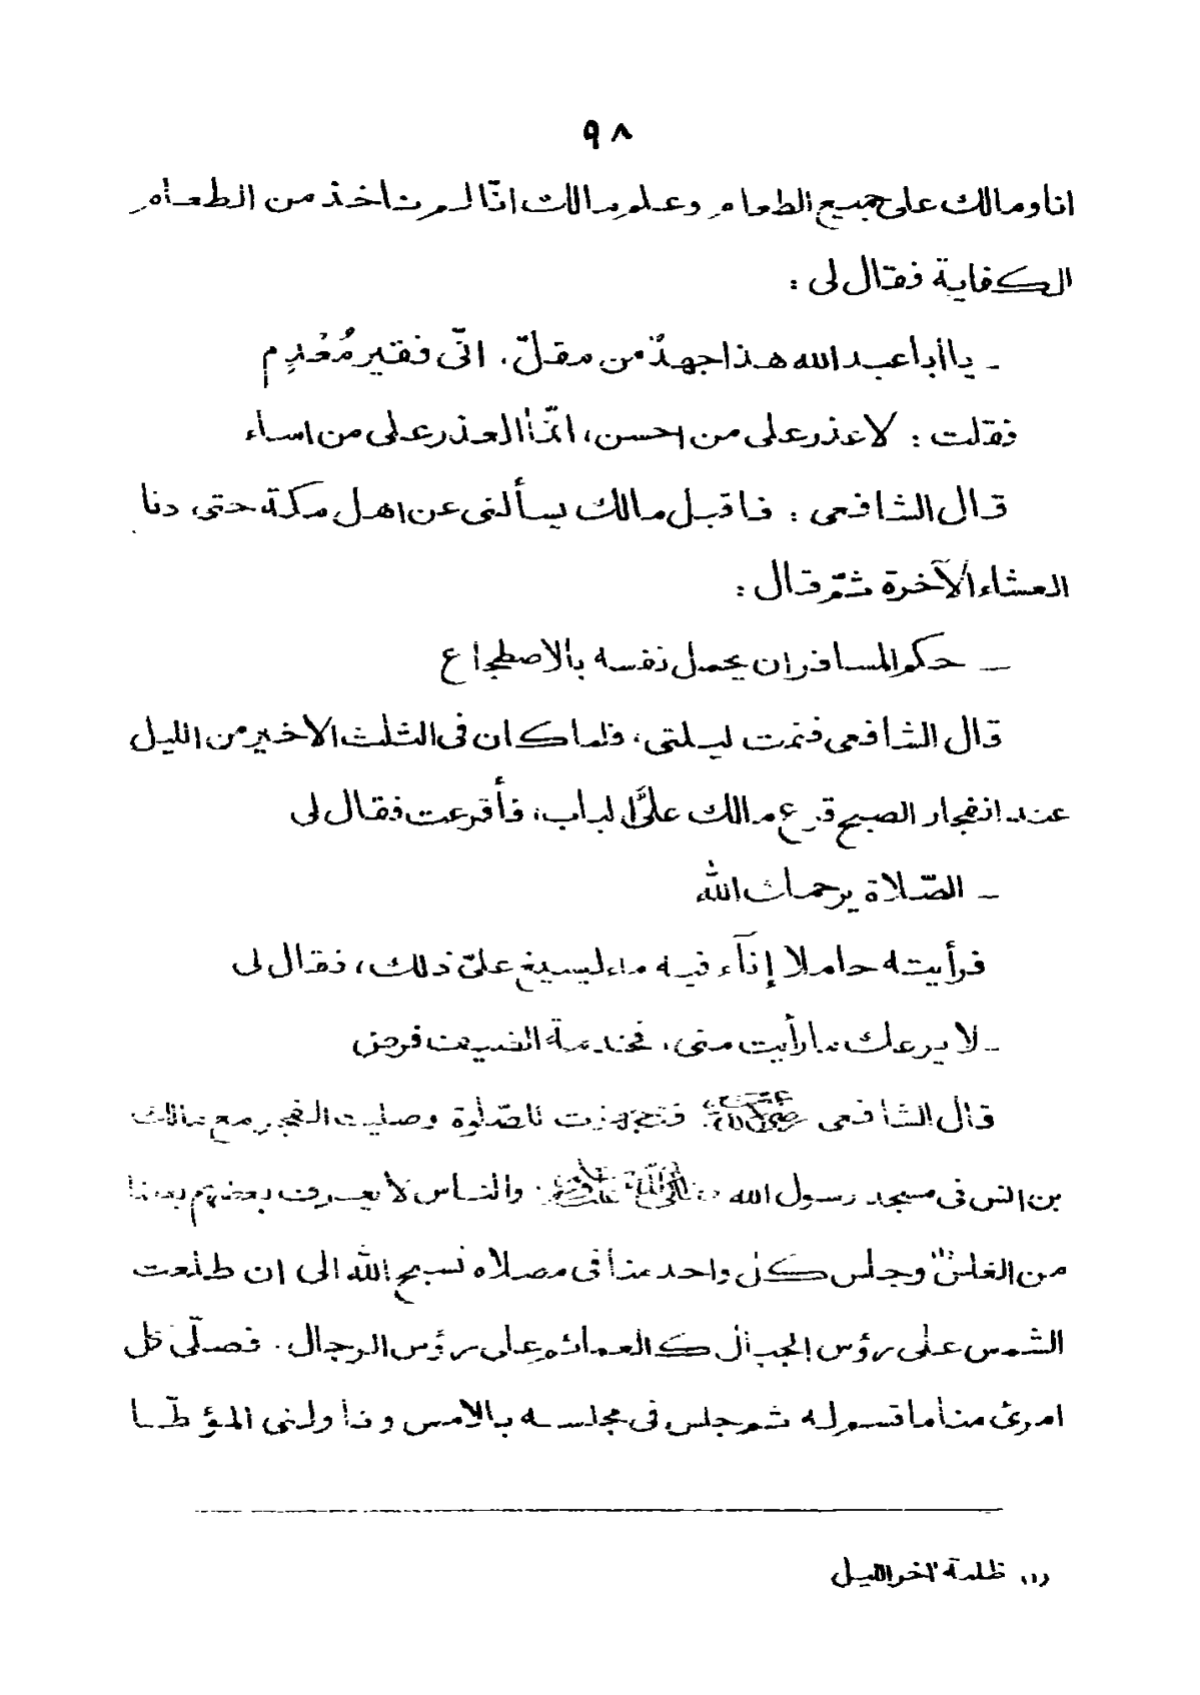 ٩٨
انا ومالك على جميع الطعام وعلم مالك انّا لم نأخذ من الطعام
الكفاية فقال لى :
ـ يا أبا عبد الله هذا جهدٌ من مقلّ، انّى فقير مُعْدِم
فقلت : لا عذر على من احسن، انّما العذر على من اساء
قال الشافعى : فاقبل مالك يسألنى عن اهل مكة حتى دنا
العشاء الآخرة ثمّ قال :
ـ حكم المسافر ان يحمل نفسه بالاضطجاع
قال الشافعى فنمت ليلتى، فلما كان فى الثلث الاخير من الليل
عند انفجار الصبح قرع مالك علىَّ الباب، فأقرعت فقال لى
ـ الصّلاة يرحمك الله
فرأيته حاملا إنآء فيه ماء ليسبغ علىّ ذلك، فقال لى
ـ لا يرعك ما رأيت منى، فخدمة الضيف فرض
قال الشافعى فتجهزت للصّلوة وصليت الفجر مع مالك
بن انس فى مسجد رسول الله والناس لا يعرف بعضهم بعضا
من الغلس(١) وجلس كل واحد منا فى مصلاه نسبح الله الى ان طلعت
الشمس على رؤس الجبال كالعمائم على رؤس الرجال. فصلّى كل
امرئ منا ما قسم له ثم جلس فى مجلسه بالامس وناولنى المؤطّا
(١) ظلمة آخر الليل